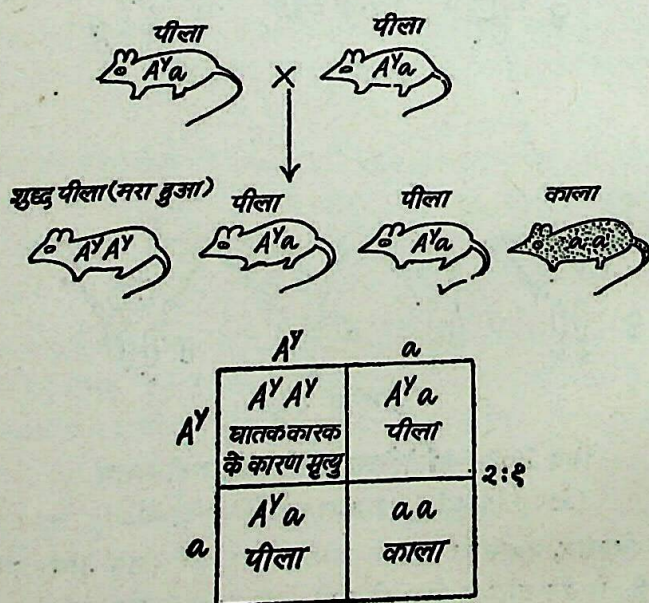 पीला पीला
Aʸa × Aʸa
शुद्ध पीला (मरा हुआ) पीला पीला काला
AʸAʸ Aʸa Aʸa a a
Aʸ a
Aʸ AʸAʸ Aʸa
घातक कारक पीला
के कारण मृत्यु
२:१
a Aʸa aa
पीला काला